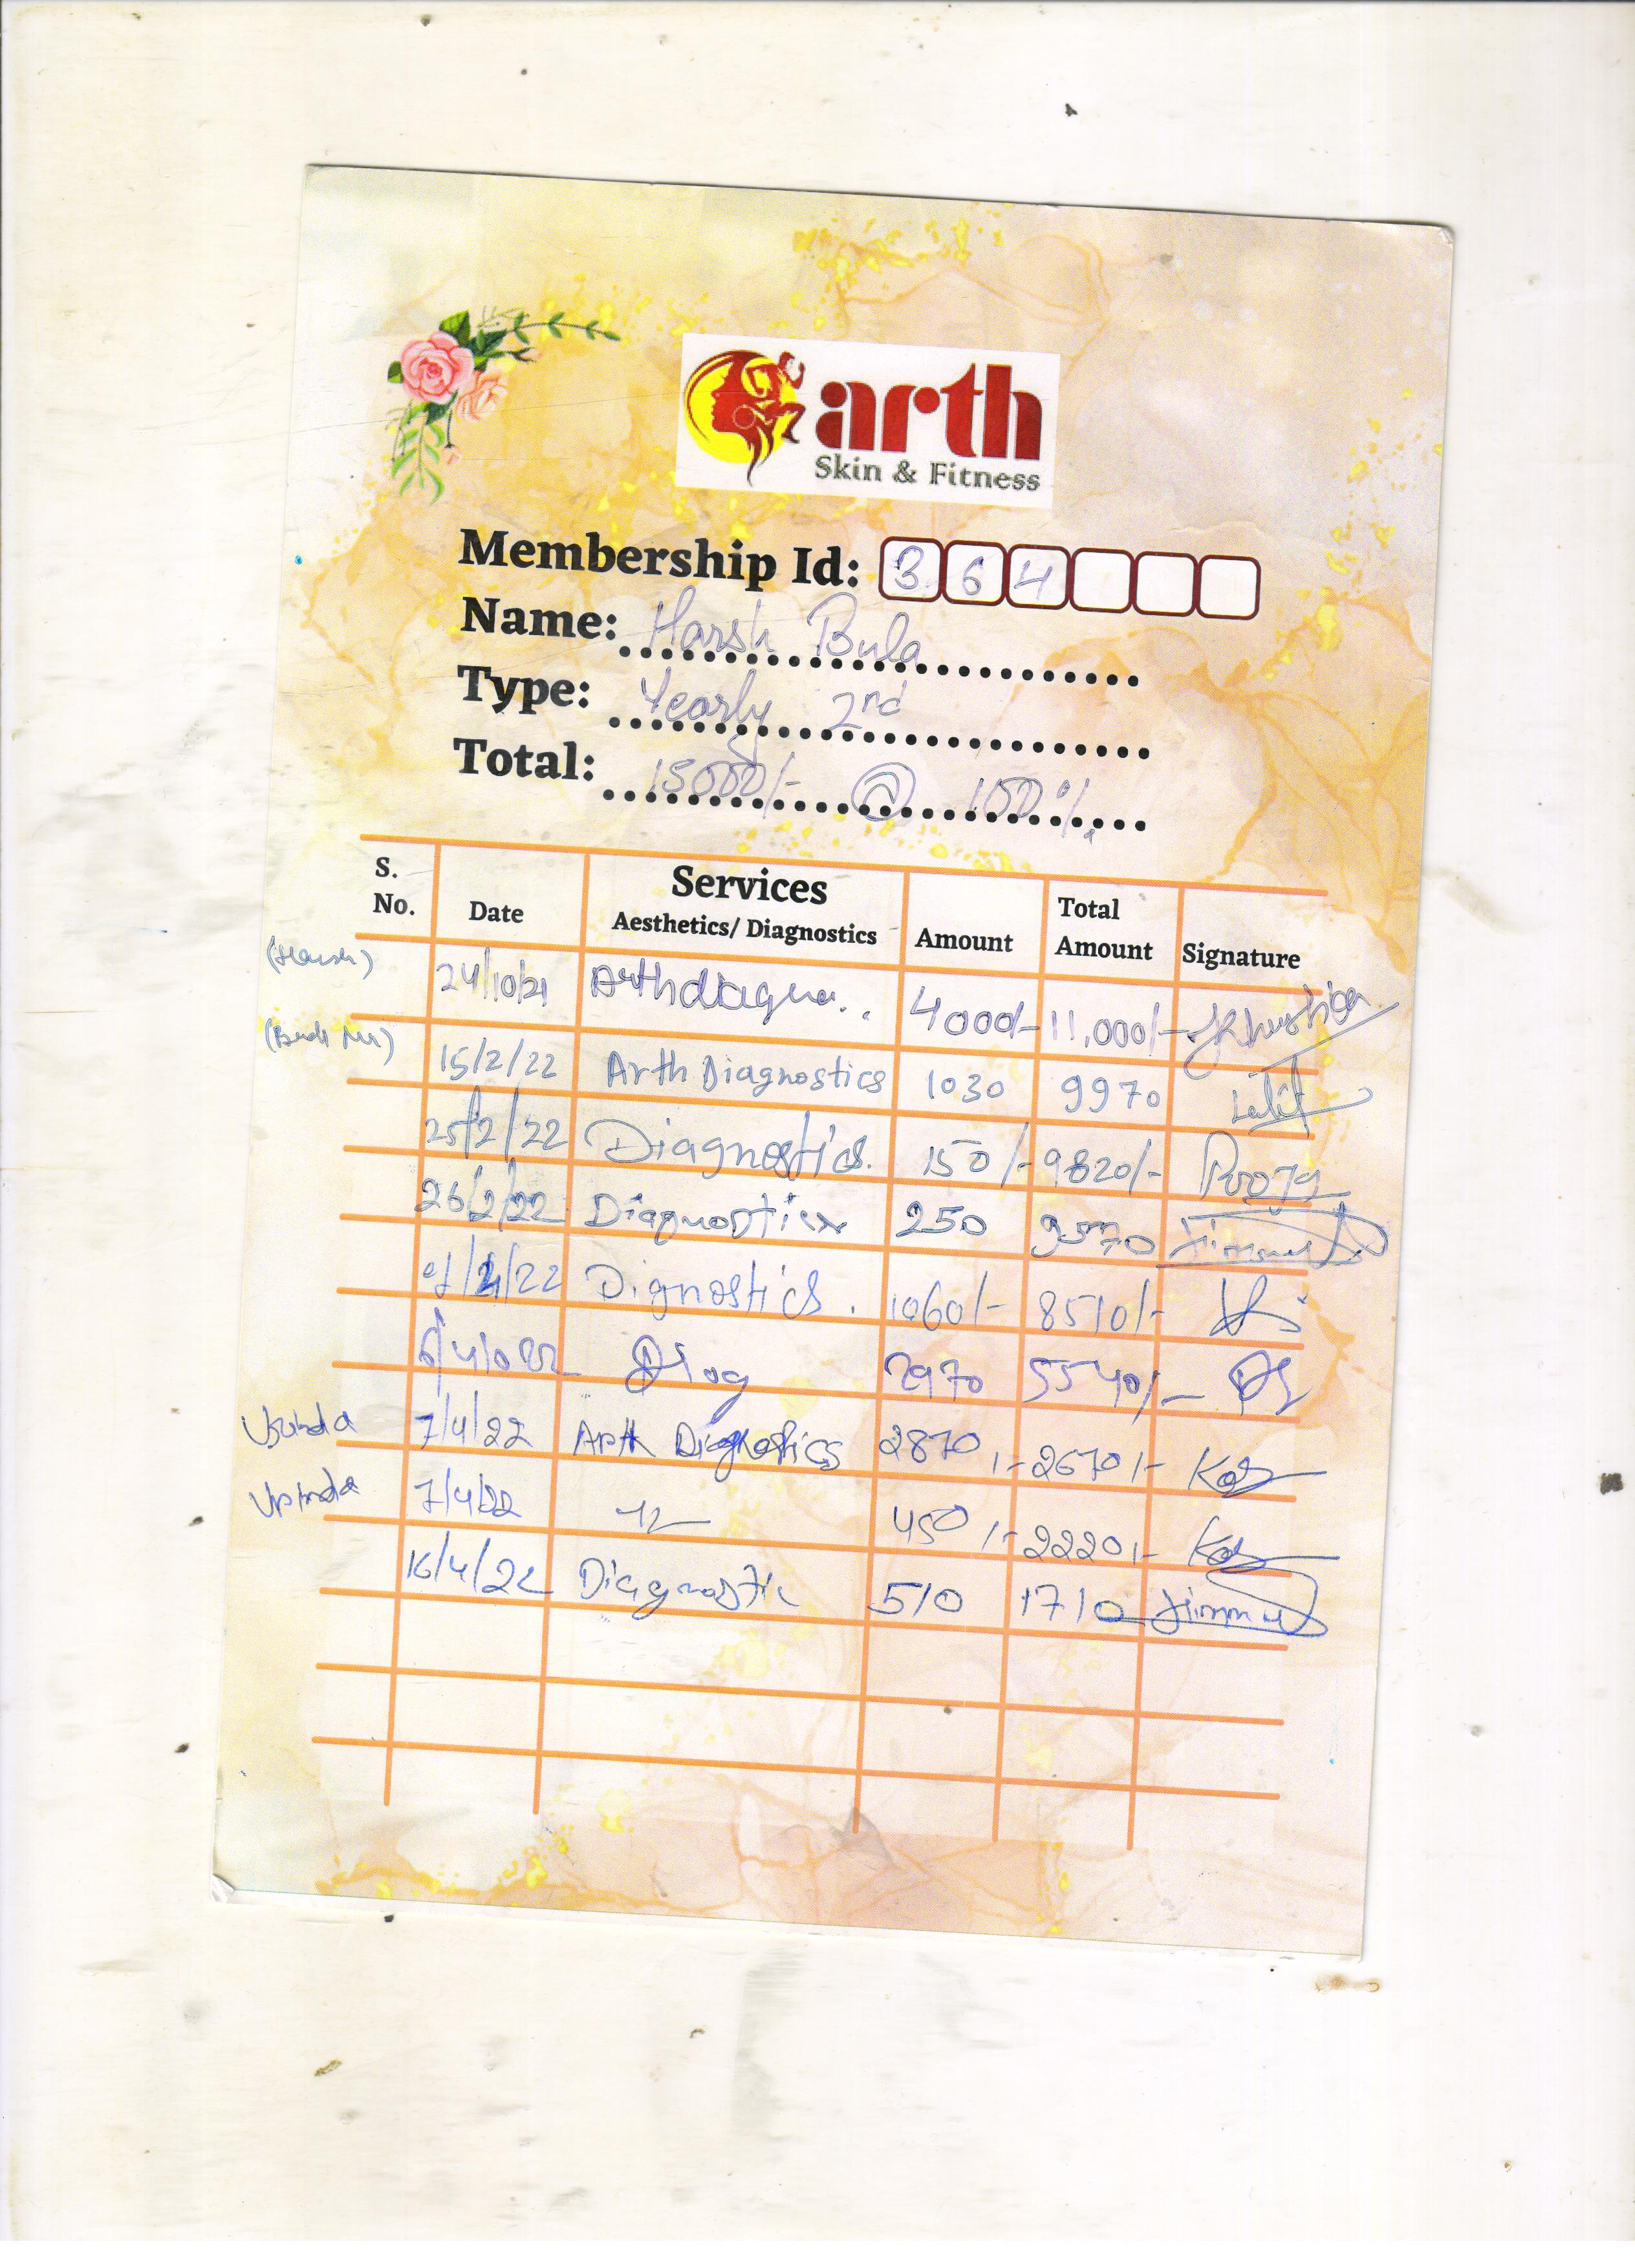 arth
Skin & Fitness
Membership Id: 364
Name: Harsh Bula
Type: Yearly 2nd
Total: 15000/- @ 100%
S. No. Date Services Aesthetics/ Diagnostics Amount Total Amount Signature
(Harsh) 24/10/21 Arthdiagno.. 4000/- 11,000/-
15/2/22 Arth Diagnostics 1030 9970 Lalit
25/2/22 Diagnostics. 150/- 9820/- Pooja
26/2/22 Diagnostics 250 9570 Jimmy
/22 Dignostics. 1060/- 8510/-
6/4/022 Diag 2970 5540/-
7/4/22 Arth Diagnostics 2870/- 2670/-
7/4/22 450/- 2220/-
16/4/22 Diagnostic 510 1710 Jimmy